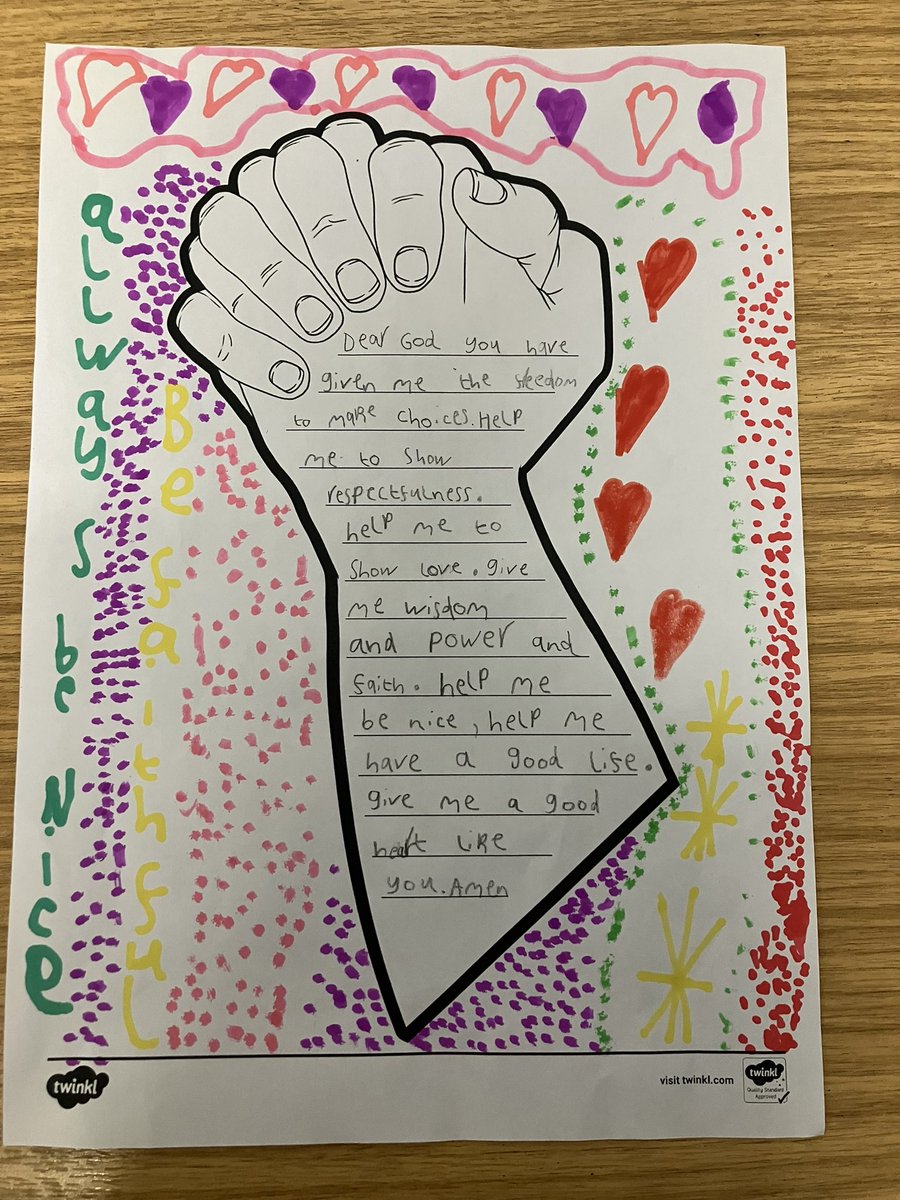 allways be Nice
Be faithful
Dear God you have
given me the freedom
to make choices. Help
me to show
respectfulness.
help me to
show love. give
me wisdom
and power and
faith. help me
be nice, help me
have a good life.
give me a good
heart like
you. Amen
twinkl
visit twinkl.com
twinkl
Quality Standard
Approved